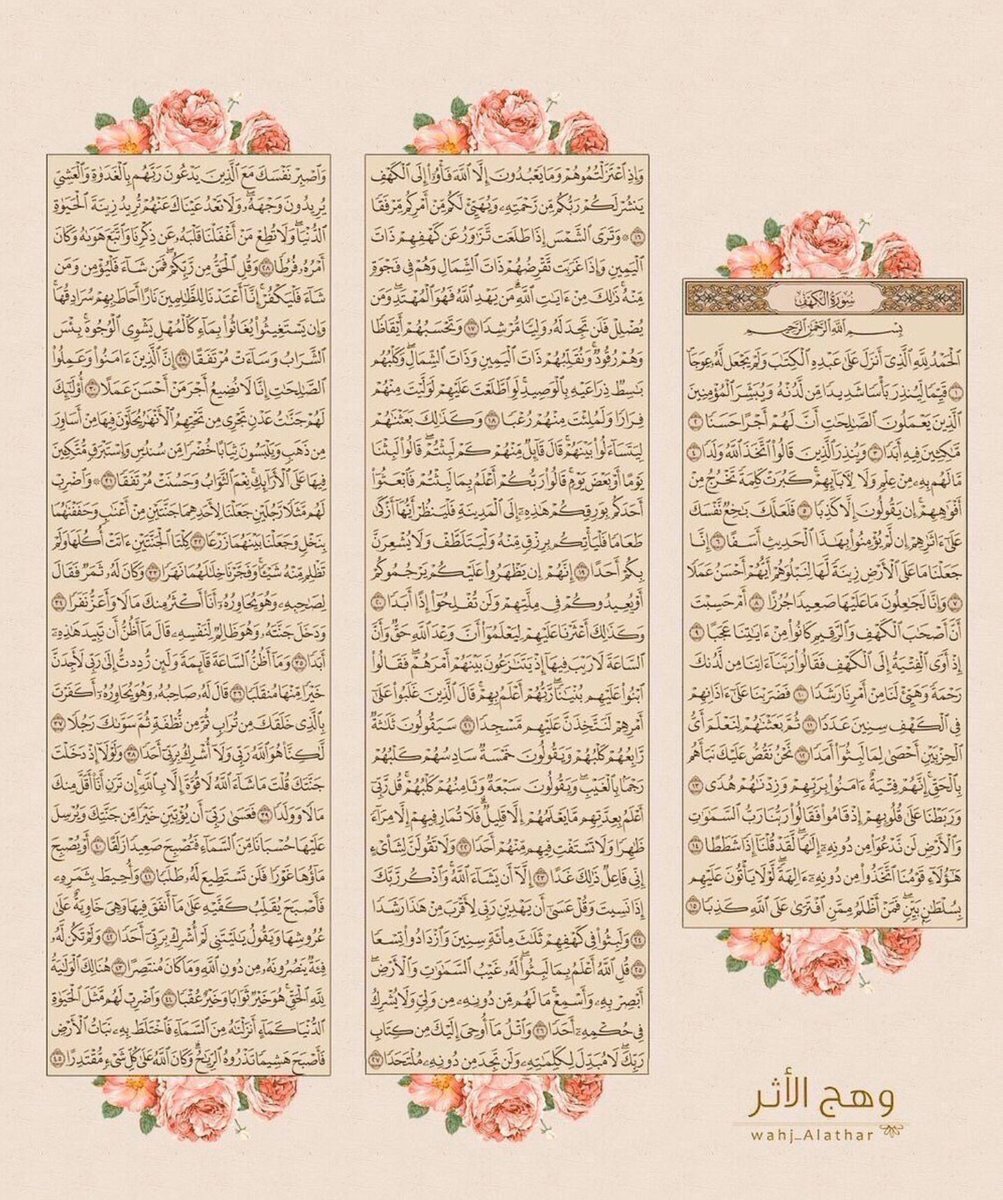 سُورَةُ الكَهْفِ
بِسْمِ ٱللَّهِ ٱلرَّحْمَٰنِ ٱلرَّحِيمِ
ٱلْحَمْدُ لِلَّهِ ٱلَّذِىٓ أَنزَلَ عَلَىٰ عَبْدِهِ ٱلْكِتَٰبَ وَلَمْ يَجْعَل لَّهُۥ عِوَجَاۜ
١ قَيِّمًا لِّيُنذِرَ بَأْسًا شَدِيدًا مِّن لَّدُنْهُ وَيُبَشِّرَ ٱلْمُؤْمِنِينَ
ٱلَّذِينَ يَعْمَلُونَ ٱلصَّٰلِحَٰتِ أَنَّ لَهُمْ أَجْرًا حَسَنًا ٢
مَّٰكِثِينَ فِيهِ أَبَدًا ٣ وَيُنذِرَ ٱلَّذِينَ قَالُوا۟ ٱتَّخَذَ ٱللَّهُ وَلَدًا ٤
مَّا لَهُم بِهِۦ مِنْ عِلْمٍ وَلَا لِءَابَآئِهِمْ ۚ كَبُرَتْ كَلِمَةً تَخْرُجُ مِنْ
أَفْوَٰهِهِمْ ۚ إِن يَقُولُونَ إِلَّا كَذِبًا ٥ فَلَعَلَّكَ بَٰخِعٌ نَّفْسَكَ
عَلَىٰٓ ءَاثَٰرِهِمْ إِن لَّمْ يُؤْمِنُوا۟ بِهَٰذَا ٱلْحَدِيثِ أَسَفًا ٦ إِنَّا
جَعَلْنَا مَا عَلَى ٱلْأَرْضِ زِينَةً لَّهَا لِنَبْلُوَهُمْ أَيُّهُمْ أَحْسَنُ عَمَلًا
٧ وَإِنَّا لَجَٰعِلُونَ مَا عَلَيْهَا صَعِيدًا جُرُزًا ٨ أَمْ حَسِبْتَ
أَنَّ أَصْحَٰبَ ٱلْكَهْفِ وَٱلرَّقِيمِ كَانُوا۟ مِنْ ءَايَٰتِنَا عَجَبًا ٩
إِذْ أَوَى ٱلْفِتْيَةُ إِلَى ٱلْكَهْفِ فَقَالُوا۟ رَبَّنَآ ءَاتِنَا مِن لَّدُنكَ
رَحْمَةً وَهَيِّئْ لَنَا مِنْ أَمْرِنَا رَشَدًا ١٠ فَضَرَبْنَا عَلَىٰٓ ءَاذَانِهِمْ
فِى ٱلْكَهْفِ سِنِينَ عَدَدًا ١١ ثُمَّ بَعَثْنَٰهُمْ لِنَعْلَمَ أَىُّ
ٱلْحِزْبَيْنِ أَحْصَىٰ لِمَا لَبِثُوٓا۟ أَمَدًا ١٢ نَّحْنُ نَقُصُّ عَلَيْكَ نَبَأَهُم
بِٱلْحَقِّ ۚ إِنَّهُمْ فِتْيَةٌ ءَامَنُوا۟ بِرَبِّهِمْ وَزِدْنَٰهُمْ هُدًى ١٣
وَرَبَطْنَا عَلَىٰ قُلُوبِهِمْ إِذْ قَامُوا۟ فَقَالُوا۟ رَبُّنَا رَبُّ ٱلسَّمَٰوَٰتِ
وَٱلْأَرْضِ لَن نَّدْعُوَا۟ مِن دُونِهِۦٓ إِلَٰهًا ۖ لَّقَدْ قُلْنَآ إِذًا شَطَطًا ١٤
هَٰٓؤُلَآءِ قَوْمُنَا ٱتَّخَذُوا۟ مِن دُونِهِۦٓ ءَالِهَةً ۖ لَّوْلَا يَأْتُونَ عَلَيْهِم
بِسُلْطَٰنٍۭ بَيِّنٍ ۖ فَمَنْ أَظْلَمُ مِمَّنِ ٱفْتَرَىٰ عَلَى ٱللَّهِ كَذِبًا ١٥
وَإِذِ ٱعْتَزَلْتُمُوهُمْ وَمَا يَعْبُدُونَ إِلَّا ٱللَّهَ فَأْوُۥٓا۟ إِلَى ٱلْكَهْفِ
يَنشُرْ لَكُمْ رَبُّكُم مِّن رَّحْمَتِهِۦ وَيُهَيِّئْ لَكُم مِّنْ أَمْرِكُم مِّرْفَقًا
١٦ ۞ وَتَرَى ٱلشَّمْسَ إِذَا طَلَعَت تَّزَٰوَرُ عَن كَهْفِهِمْ ذَاتَ
ٱلْيَمِينِ وَإِذَا غَرَبَت تَّقْرِضُهُمْ ذَاتَ ٱلشِّمَالِ وَهُمْ فِى فَجْوَةٍ
مِّنْهُ ۚ ذَٰلِكَ مِنْ ءَايَٰتِ ٱللَّهِ ۗ مَن يَهْدِ ٱللَّهُ فَهُوَ ٱلْمُهْتَدِ ۖ وَمَن
يُضْلِلْ فَلَن تَجِدَ لَهُۥ وَلِيًّا مُّرْشِدًا ١٧ وَتَحْسَبُهُمْ أَيْقَاظًا
وَهُمْ رُقُودٌ ۚ وَنُقَلِّبُهُمْ ذَاتَ ٱلْيَمِينِ وَذَاتَ ٱلشِّمَالِ ۖ وَكَلْبُهُم
بَٰسِطٌ ذِرَاعَيْهِ بِٱلْوَصِيدِ ۚ لَوِ ٱطَّلَعْتَ عَلَيْهِمْ لَوَلَّيْتَ مِنْهُمْ
فِرَارًا وَلَمُلِئْتَ مِنْهُمْ رُعْبًا ١٨ وَكَذَٰلِكَ بَعَثْنَٰهُمْ
لِيَتَسَآءَلُوا۟ بَيْنَهُمْ ۚ قَالَ قَآئِلٌ مِّنْهُمْ كَمْ لَبِثْتُمْ ۖ قَالُوا۟ لَبِثْنَا
يَوْمًا أَوْ بَعْضَ يَوْمٍ ۚ قَالُوا۟ رَبُّكُمْ أَعْلَمُ بِمَا لَبِثْتُمْ فَٱبْعَثُوٓا۟
أَحَدَكُم بِوَرِقِكُمْ هَٰذِهِۦٓ إِلَى ٱلْمَدِينَةِ فَلْيَنظُرْ أَيُّهَآ أَزْكَىٰ
طَعَامًا فَلْيَأْتِكُم بِرِزْقٍ مِّنْهُ وَلْيَتَلَطَّفْ وَلَا يُشْعِرَنَّ
بِكُمْ أَحَدًا ١٩ إِنَّهُمْ إِن يَظْهَرُوا۟ عَلَيْكُمْ يَرْجُمُوكُمْ
أَوْ يُعِيدُوكُمْ فِى مِلَّتِهِمْ وَلَن تُفْلِحُوٓا۟ إِذًا أَبَدًا ٢٠
وَكَذَٰلِكَ أَعْثَرْنَا عَلَيْهِمْ لِيَعْلَمُوٓا۟ أَنَّ وَعْدَ ٱللَّهِ حَقٌّ وَأَنَّ
ٱلسَّاعَةَ لَا رَيْبَ فِيهَآ إِذْ يَتَنَٰزَعُونَ بَيْنَهُمْ أَمْرَهُمْ ۖ فَقَالُوا۟
ٱبْنُوا۟ عَلَيْهِم بُنْيَٰنًا ۖ رَّبُّهُمْ أَعْلَمُ بِهِمْ ۚ قَالَ ٱلَّذِينَ غَلَبُوا۟ عَلَىٰٓ
أَمْرِهِمْ لَنَتَّخِذَنَّ عَلَيْهِم مَّسْجِدًا ٢١ سَيَقُولُونَ ثَلَٰثَةٌ
رَّابِعُهُمْ كَلْبُهُمْ وَيَقُولُونَ خَمْسَةٌ سَادِسُهُمْ كَلْبُهُمْ
رَجْمًۢا بِٱلْغَيْبِ ۖ وَيَقُولُونَ سَبْعَةٌ وَثَامِنُهُمْ كَلْبُهُمْ ۚ قُل رَّبِّىٓ
أَعْلَمُ بِعِدَّتِهِم مَّا يَعْلَمُهُمْ إِلَّا قَلِيلٌ ۗ فَلَا تُمَارِ فِيهِمْ إِلَّا مِرَآءً
ظَٰهِرًا وَلَا تَسْتَفْتِ فِيهِم مِّنْهُمْ أَحَدًا ٢٢ وَلَا تَقُولَنَّ لِشَا۟ىْءٍ
إِنِّى فَاعِلٌ ذَٰلِكَ غَدًا ٢٣ إِلَّآ أَن يَشَآءَ ٱللَّهُ ۚ وَٱذْكُر رَّبَّكَ
إِذَا نَسِيتَ وَقُلْ عَسَىٰٓ أَن يَهْدِيَنِ رَبِّى لِأَقْرَبَ مِنْ هَٰذَا رَشَدًا
٢٤ وَلَبِثُوا۟ فِى كَهْفِهِمْ ثَلَٰثَ مِا۟ئَةٍ سِنِينَ وَٱزْدَادُوا۟ تِسْعًا
٢٥ قُلِ ٱللَّهُ أَعْلَمُ بِمَا لَبِثُوا۟ ۖ لَهُۥ غَيْبُ ٱلسَّمَٰوَٰتِ وَٱلْأَرْضِ ۖ
أَبْصِرْ بِهِۦ وَأَسْمِعْ ۚ مَا لَهُم مِّن دُونِهِۦ مِن وَلِىٍّ وَلَا يُشْرِكُ
فِى حُكْمِهِۦٓ أَحَدًا ٢٦ وَٱتْلُ مَآ أُوحِىَ إِلَيْكَ مِن كِتَابِ
رَبِّكَ ۖ لَا مُبَدِّلَ لِكَلِمَٰتِهِۦ وَلَن تَجِدَ مِن دُونِهِۦ مُلْتَحَدًا ٢٧
وَٱصْبِرْ نَفْسَكَ مَعَ ٱلَّذِينَ يَدْعُونَ رَبَّهُم بِٱلْغَدَوٰةِ وَٱلْعَشِىِّ
يُرِيدُونَ وَجْهَهُۥ ۖ وَلَا تَعْدُ عَيْنَاكَ عَنْهُمْ تُرِيدُ زِينَةَ ٱلْحَيَوٰةِ
ٱلدُّنْيَا ۖ وَلَا تُطِعْ مَنْ أَغْفَلْنَا قَلْبَهُۥ عَن ذِكْرِنَا وَٱتَّبَعَ هَوَىٰهُ وَكَانَ
أَمْرُهُۥ فُرُطًا ٢٨ وَقُلِ ٱلْحَقُّ مِن رَّبِّكُمْ ۖ فَمَن شَآءَ فَلْيُؤْمِن وَمَن
شَآءَ فَلْيَكْفُرْ ۚ إِنَّآ أَعْتَدْنَا لِلظَّٰلِمِينَ نَارًا أَحَاطَ بِهِمْ سُرَادِقُهَا ۚ
وَإِن يَسْتَغِيثُوا۟ يُغَاثُوا۟ بِمَآءٍ كَٱلْمُهْلِ يَشْوِى ٱلْوُجُوهَ ۚ بِئْسَ
ٱلشَّرَابُ وَسَآءَتْ مُرْتَفَقًا ٢٩ إِنَّ ٱلَّذِينَ ءَامَنُوا۟ وَعَمِلُوا۟
ٱلصَّٰلِحَٰتِ إِنَّا لَا نُضِيعُ أَجْرَ مَنْ أَحْسَنَ عَمَلًا ٣٠ أُو۟لَٰٓئِكَ
لَهُمْ جَنَّٰتُ عَدْنٍ تَجْرِى مِن تَحْتِهِمُ ٱلْأَنْهَٰرُ يُحَلَّوْنَ فِيهَا مِنْ أَسَاوِرَ
مِن ذَهَبٍ وَيَلْبَسُونَ ثِيَابًا خُضْرًا مِّن سُندُسٍ وَإِسْتَبْرَقٍ مُّتَّكِـِٔينَ
فِيهَا عَلَى ٱلْأَرَآئِكِ ۚ نِعْمَ ٱلثَّوَابُ وَحَسُنَتْ مُرْتَفَقًا ٣١ ۞ وَٱضْرِبْ
لَهُم مَّثَلًا رَّجُلَيْنِ جَعَلْنَا لِأَحَدِهِمَا جَنَّتَيْنِ مِنْ أَعْنَٰبٍ وَحَفَفْنَٰهُمَا
بِنَخْلٍ وَجَعَلْنَا بَيْنَهُمَا زَرْعًا ٣٢ كِلْتَا ٱلْجَنَّتَيْنِ ءَاتَتْ أُكُلَهَا وَلَمْ
تَظْلِم مِّنْهُ شَيْـًٔا ۚ وَفَجَّرْنَا خِلَٰلَهُمَا نَهَرًا ٣٣ وَكَانَ لَهُۥ ثَمَرٌ فَقَالَ
لِصَٰحِبِهِۦ وَهُوَ يُحَاوِرُهُۥٓ أَنَا۠ أَكْثَرُ مِنكَ مَالًا وَأَعَزُّ نَفَرًا ٣٤
وَدَخَلَ جَنَّتَهُۥ وَهُوَ ظَالِمٌ لِّنَفْسِهِۦ قَالَ مَآ أَظُنُّ أَن تَبِيدَ هَٰذِهِۦٓ
أَبَدًا ٣٥ وَمَآ أَظُنُّ ٱلسَّاعَةَ قَآئِمَةً وَلَئِن رُّدِدتُّ إِلَىٰ رَبِّى لَأَجِدَنَّ
خَيْرًا مِّنْهَا مُنقَلَبًا ٣٦ قَالَ لَهُۥ صَاحِبُهُۥ وَهُوَ يُحَاوِرُهُۥٓ أَكَفَرْتَ
بِٱلَّذِى خَلَقَكَ مِن تُرَابٍ ثُمَّ مِن نُّطْفَةٍ ثُمَّ سَوَّىٰكَ رَجُلًا ٣٧
لَّٰكِنَّا۠ هُوَ ٱللَّهُ رَبِّى وَلَآ أُشْرِكُ بِرَبِّىٓ أَحَدًا ٣٨ وَلَوْلَآ إِذْ دَخَلْتَ
جَنَّتَكَ قُلْتَ مَا شَآءَ ٱللَّهُ لَا قُوَّةَ إِلَّا بِٱللَّهِ ۚ إِن تَرَنِ أَنَا۠ أَقَلَّ مِنكَ
مَالًا وَوَلَدًا ٣٩ فَعَسَىٰ رَبِّىٓ أَن يُؤْتِيَنِ خَيْرًا مِّن جَنَّتِكَ وَيُرْسِلَ
عَلَيْهَا حُسْبَانًا مِّنَ ٱلسَّمَآءِ فَتُصْبِحَ صَعِيدًا زَلَقًا ٤٠ أَوْ يُصْبِحَ
مَآؤُهَا غَوْرًا فَلَن تَسْتَطِيعَ لَهُۥ طَلَبًا ٤١ وَأُحِيطَ بِثَمَرِهِۦ
فَأَصْبَحَ يُقَلِّبُ كَفَّيْهِ عَلَىٰ مَآ أَنفَقَ فِيهَا وَهِىَ خَاوِيَةٌ عَلَىٰ
عُرُوشِهَا وَيَقُولُ يَٰلَيْتَنِى لَمْ أُشْرِكْ بِرَبِّىٓ أَحَدًا ٤٢ وَلَمْ تَكُن لَّهُۥ
فِئَةٌ يَنصُرُونَهُۥ مِن دُونِ ٱللَّهِ وَمَا كَانَ مُنتَصِرًا ٤٣ هُنَالِكَ ٱلْوَلَٰيَةُ
لِلَّهِ ٱلْحَقِّ ۚ هُوَ خَيْرٌ ثَوَابًا وَخَيْرٌ عُقْبًا ٤٤ وَٱضْرِبْ لَهُم مَّثَلَ ٱلْحَيَوٰةِ
ٱلدُّنْيَا كَمَآءٍ أَنزَلْنَٰهُ مِنَ ٱلسَّمَآءِ فَٱخْتَلَطَ بِهِۦ نَبَاتُ ٱلْأَرْضِ
فَأَصْبَحَ هَشِيمًا تَذْرُوهُ ٱلرِّيَٰحُ ۗ وَكَانَ ٱللَّهُ عَلَىٰ كُلِّ شَىْءٍ مُّقْتَدِرًا ٤٥
وهج الأثر
wahj_Alathar